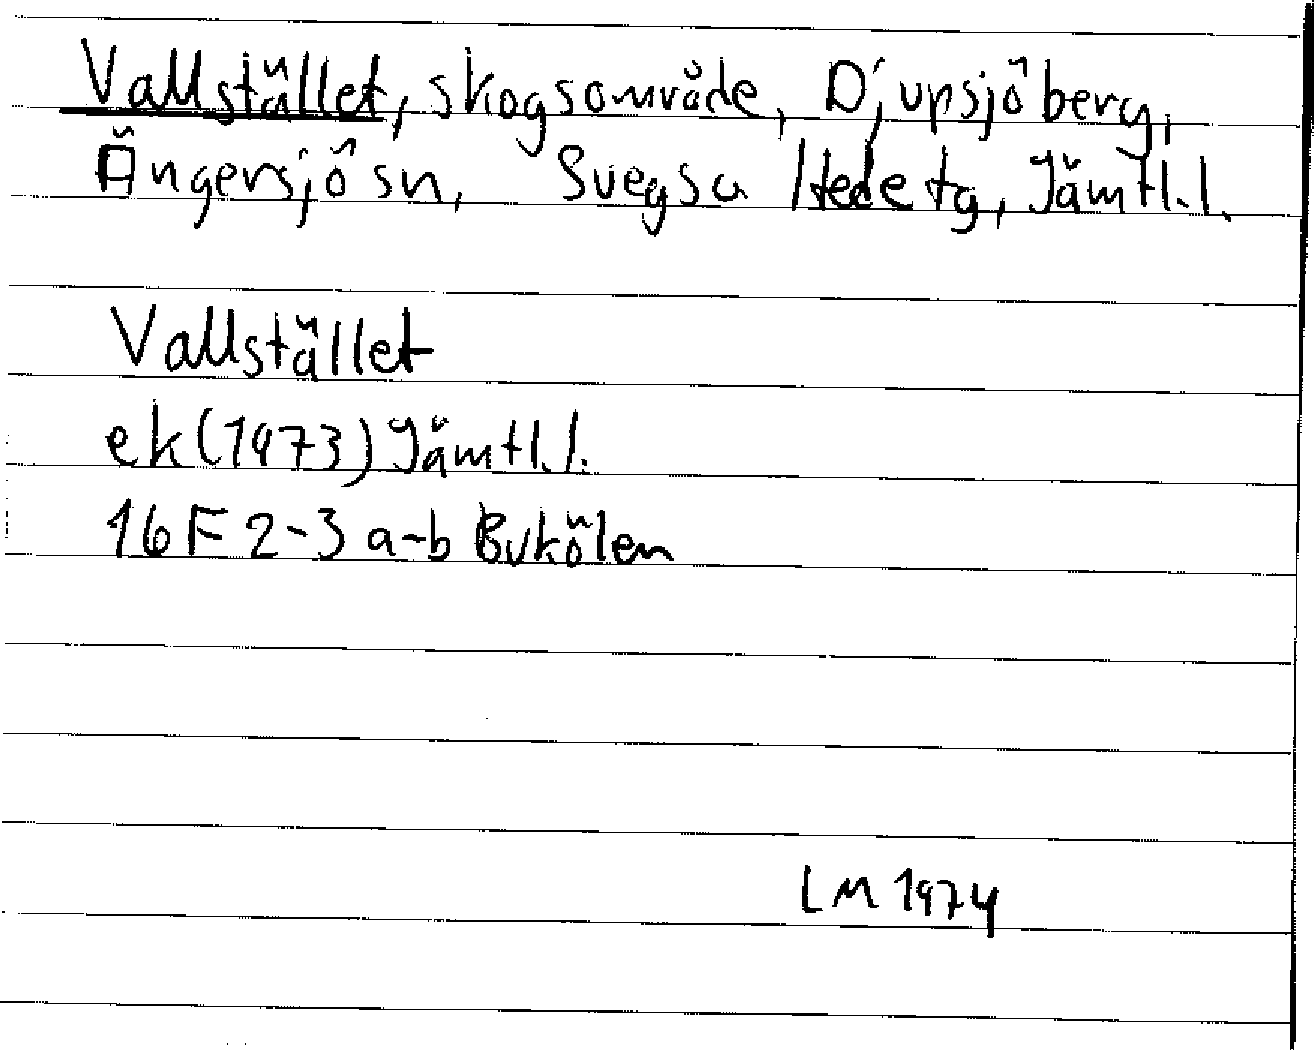 Vallstället, skogsområde, Djupsjöberg,
Ängersjö sn, Svegs o Hede tg, Jämtl.l.
Vallstället
ek (1973) Jämtl.l.
16 F 2-3 a-b Burkölen
LM 1974